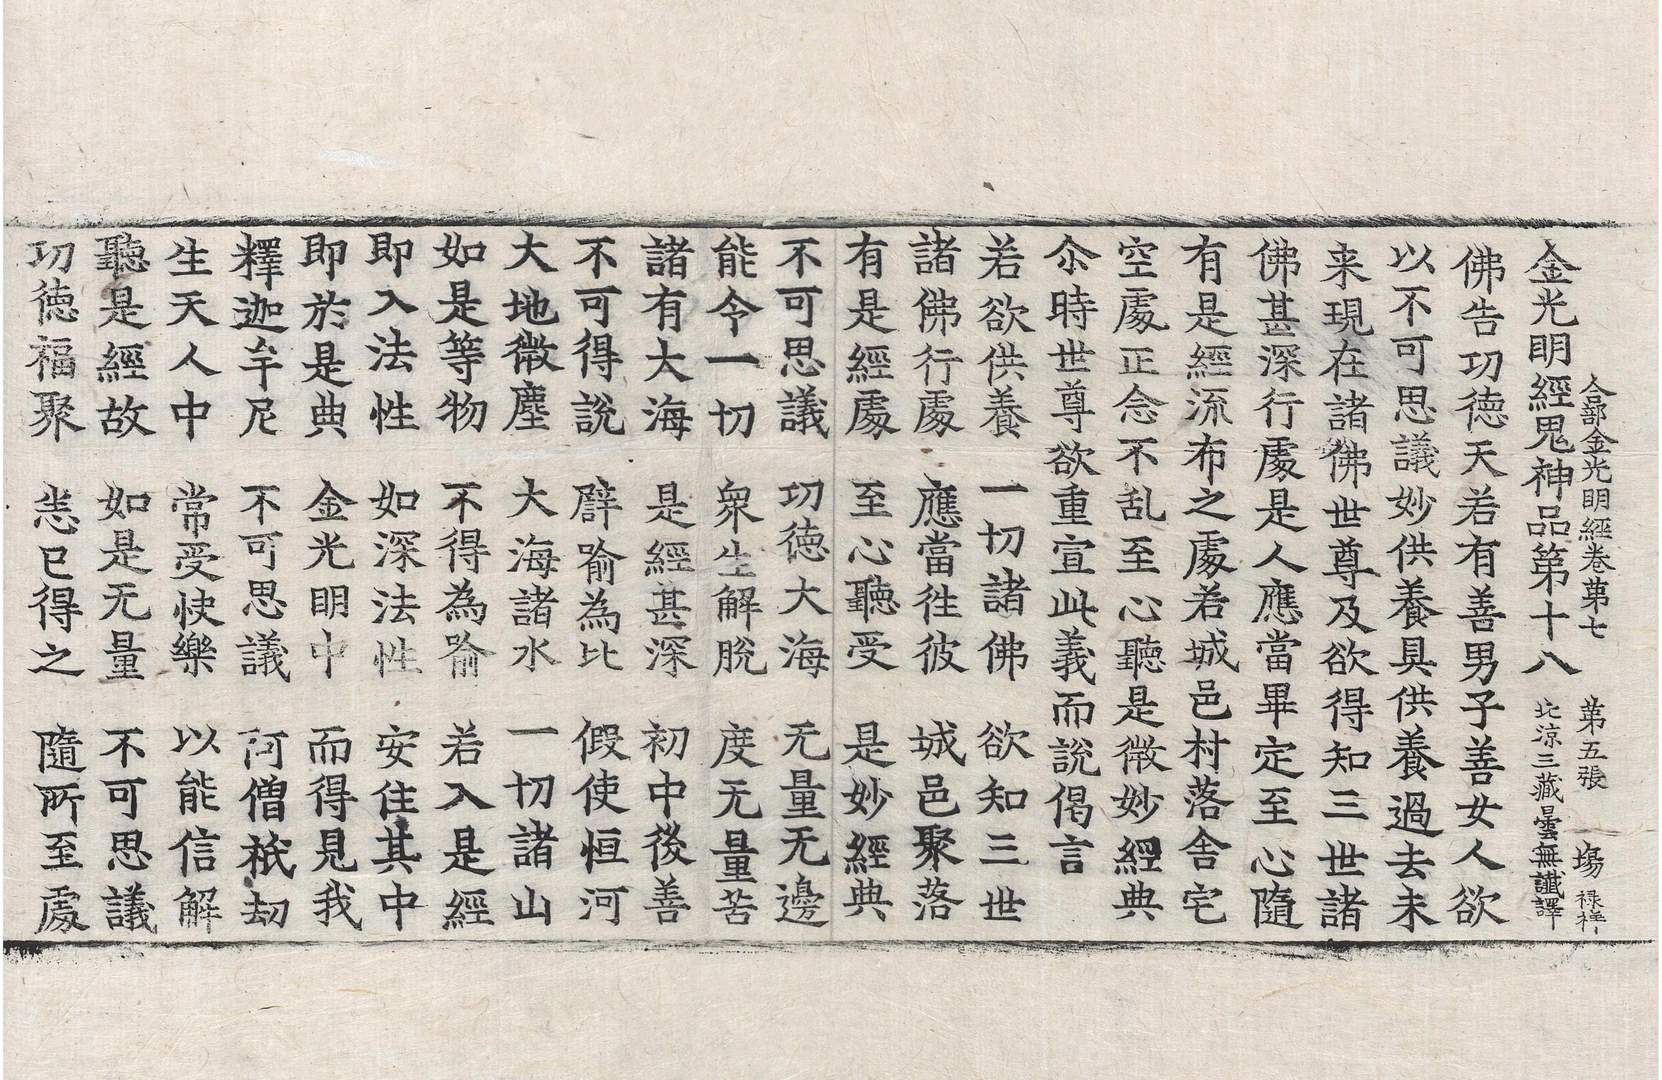 合部金光明經卷苐七　苐五張　塲　禄祥
金光明經鬼神品第十八　北涼三藏曇無讖譯
佛告功徳天若有善男子善女人欲
以不可思議妙供養具供養過去未
来現在諸佛世尊及欲得知三世諸
佛甚深行處是人應當畢定至心隨
有是經流布之處若城邑村落舍宅
空處正念不乱至心聽是微妙經典
尒時世尊欲重宣此義而說偈言
若欲供養　一切諸佛　欲知三世
諸佛行處　應當徃彼　城邑聚落
有是經處　至心聽受　是妙經典
不可思議　功徳大海　无量无邊
能令一切　衆生解脫　度无量苦
諸有大海　是經甚深　初中後善
不可得說　譬喻為比　假使恒河
大地微塵　大海諸水　一切諸山
如是等物　不得為喻　若入是經
即入法性　如深法性　安住其中
即於是典　金光明中　而得見我
釋迦牟尼　不可思議　阿僧祇劫
生天人中　常受快樂　以能信解
聽是經故　如是无量　不可思議
功徳福聚　悉已得之　隨所至處